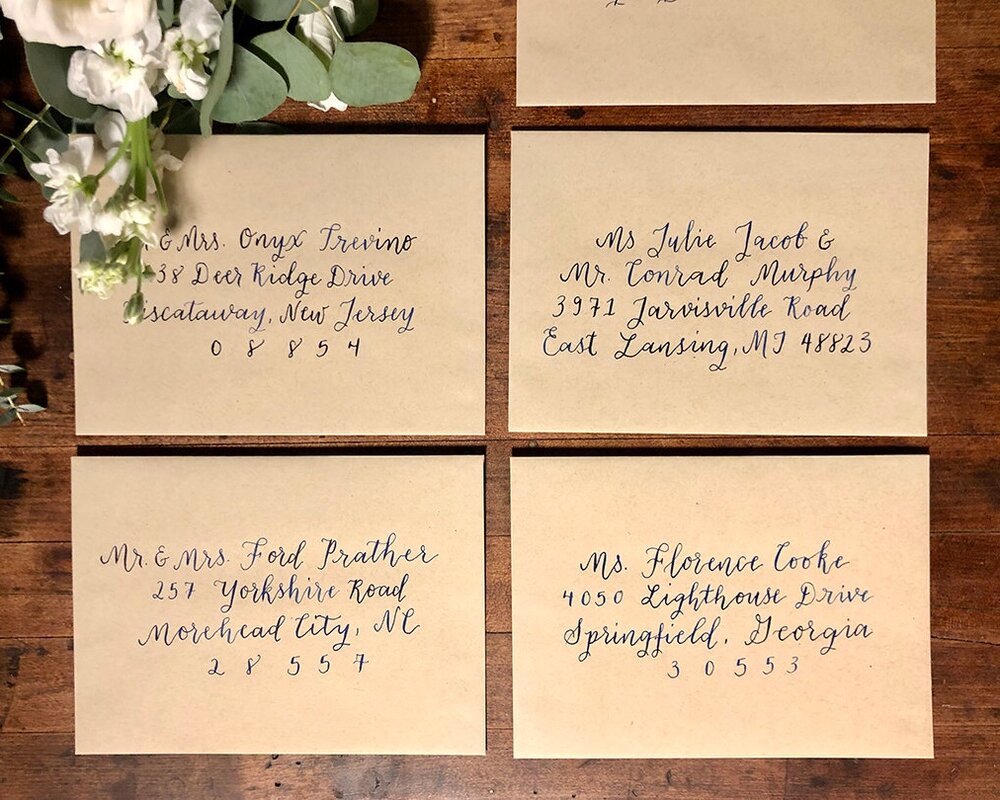 & Mrs. Onyx Trevino
38 Deer Ridge Drive
iscataway, New Jersey
0 8 8 5 4
Ms Julie Jacob &
Mr. Conrad Murphy
3971 Jarvisville Road
East Lansing, MI 48823
Mr. & Mrs. Ford Prather
257 Yorkshire Road
Morehead City, NC
2 8 5 5 7
Ms. Florence Cooke
4050 Lighthouse Drive
Springfield, Georgia
3 0 5 5 3